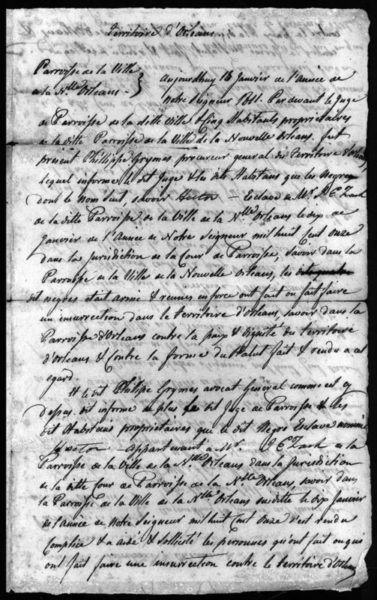 Territoire d'Orléans
Parroisse de la Ville
de la Nlle Orleans
aujourdhuy 16 Janvier de l'année de
notre Seigneur 1811. Pardevant le Juge
de Parroisse de la ditte Ville & Cinq habitants proprietaires
de la ditte Parroisse de la Ville de la Nouvelle Orleans, fut
present Phillippe Grymes procureur general du Territoire d'Orleans
lequel informe le dit Juge & les dits Habitans que les Negres
dont les Nom suit, savoir Hector — Esclave de Mr.
de la ditte Parroisse de la Ville de la Nlle Orleans le dix de
Janvier de l'Année de Notre Seigneur mil huit cent onze
dans la jurisdiction de la Cour de Parroisse, savoir dans la
Parroisse de la Ville de la Nouvelle Orleans, les
dit negres etait armé & reunis en force ont fait ou fait faire
un insurrection dans le territoire d'Orleans, savoir dans la
Parroisse d'Orleans contre la paix & dignité du territoire
d'Orleans & contre la forme du Statut fait & rendu a cet
egard.
& le dit Philipe Grymes avocat Général comme cy
dessus dit informe de plus le dit Juge de Parroisse & les
dit Habitans proprietaires que le dit Negre Esclave nommé
Hector — appartenant a Mr. de la
Parroisse de la Ville de la Nlle Orleans dans la Jurisdiction
de la ditte Cour de Parroisse de la Nlle Orleans, savoir dans
la Parroisse de la Ville de la Nlle Orleans susditte le dix Janvier
de l'année de Notre Seigneur mil huit cent onze s'est rendu
Complice & a aidé & sollicité les personnes qu'ont fait ou qui
ont fait faire une insurrection contre le territoire d'Orleans